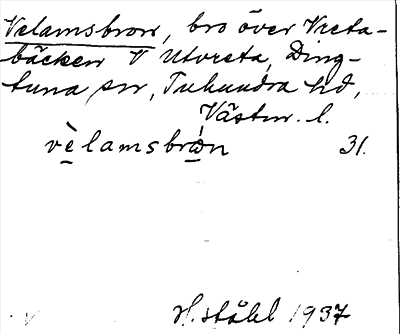 Velamsbron, bro över Vreta-
bäcken V Utvreta, Ding-
tuna sn, Tuhundra hd,
Västm. l.
vè̱lamsbrò̱n 31.
H. Ståhl 1937